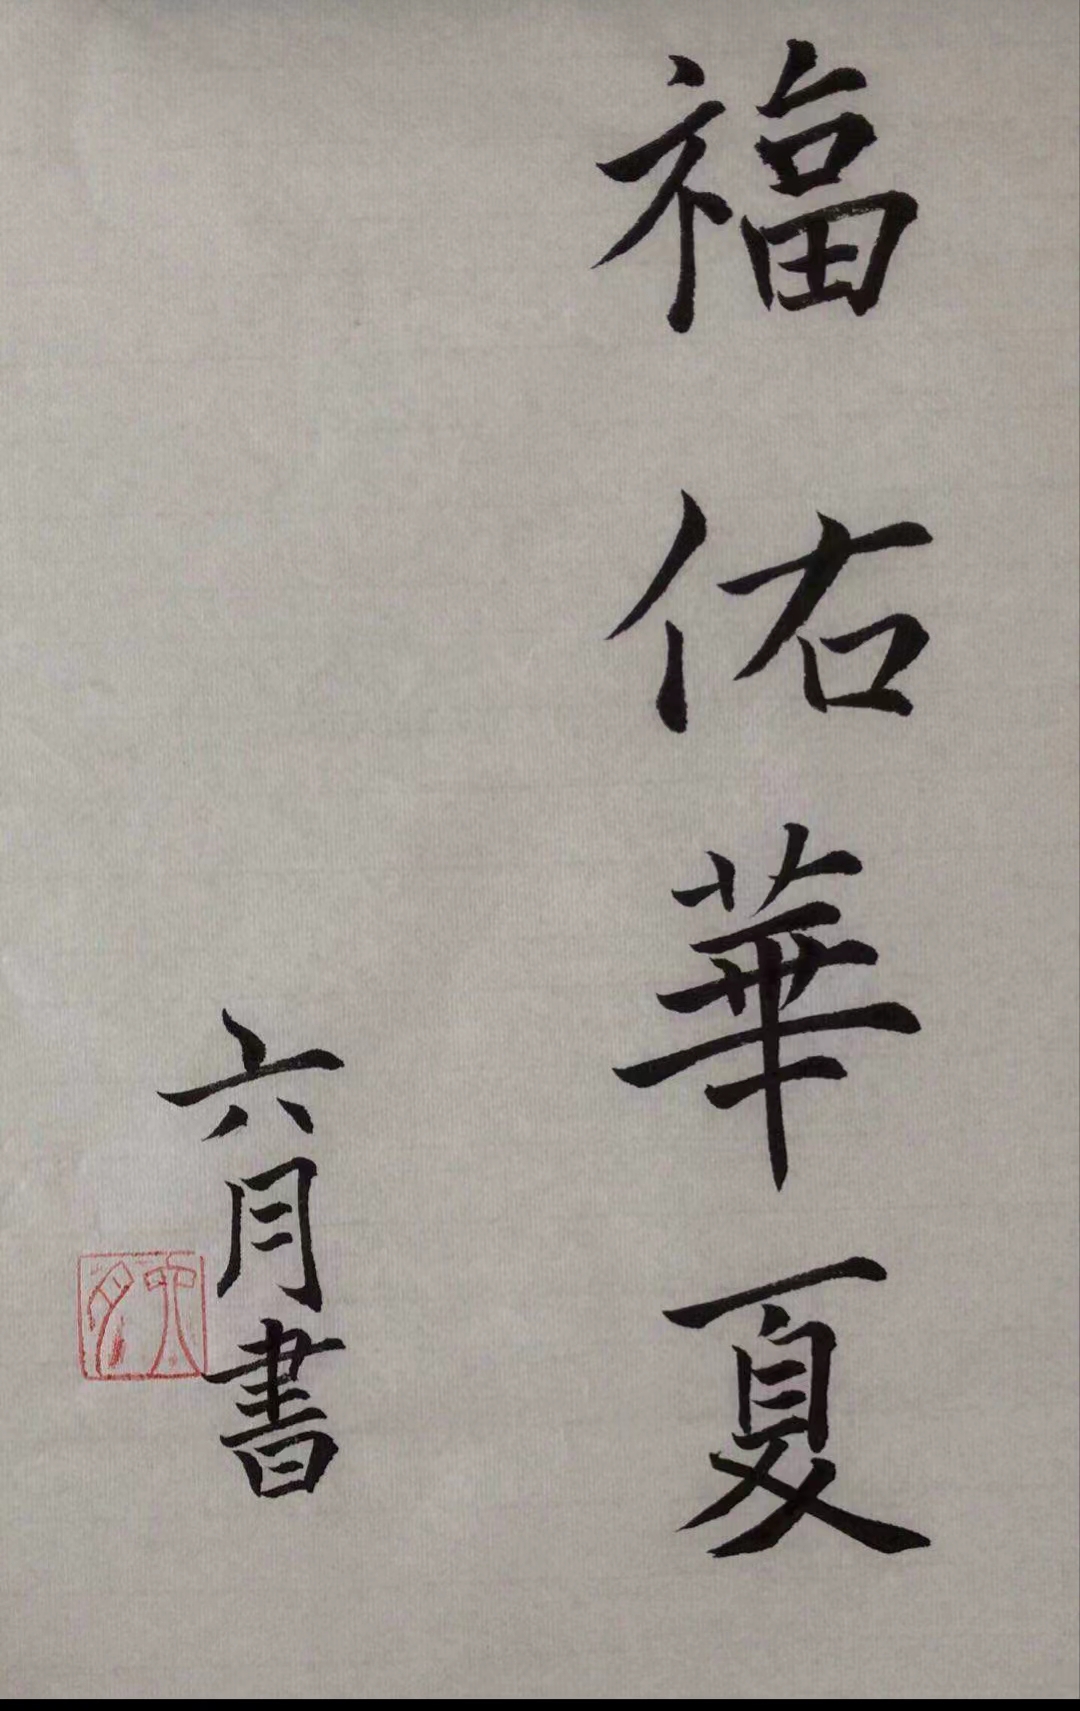 福佑華夏
六月書